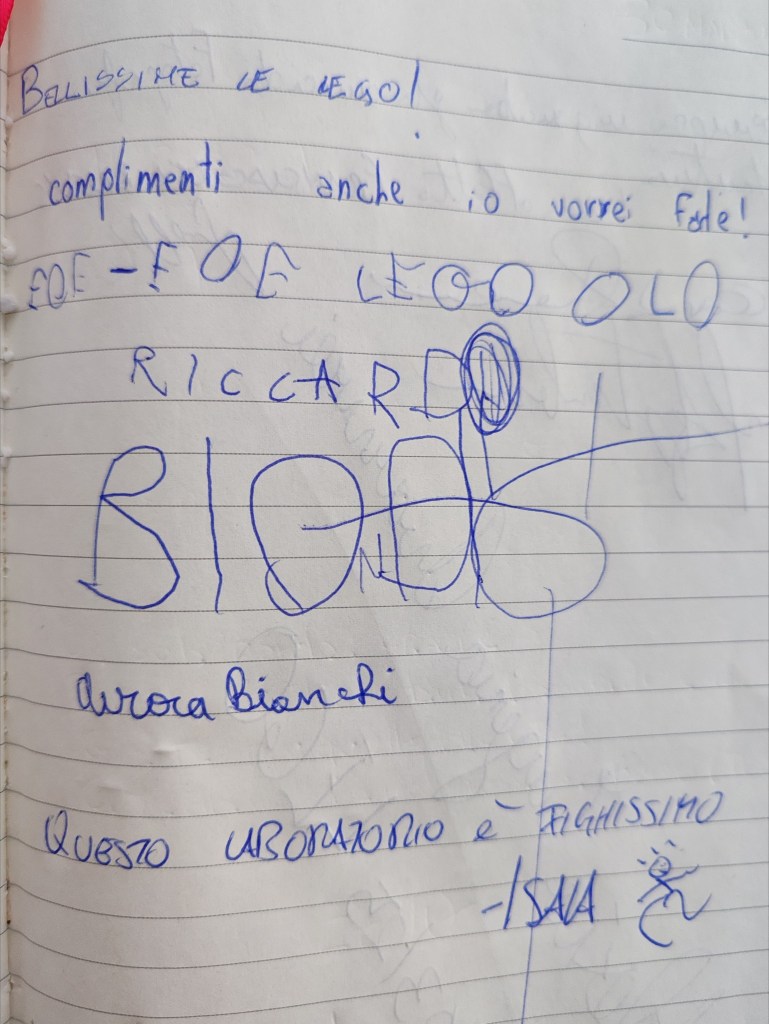 BELISSIME LE LEGO!
complimenti anche io vorrei farle!
EOE-EOE LEOO OLO
RICCARDO
BIONDO
Aurora Bianchi
QUESTO LABORATORIO È FIGHISSIMO
-ISAIA